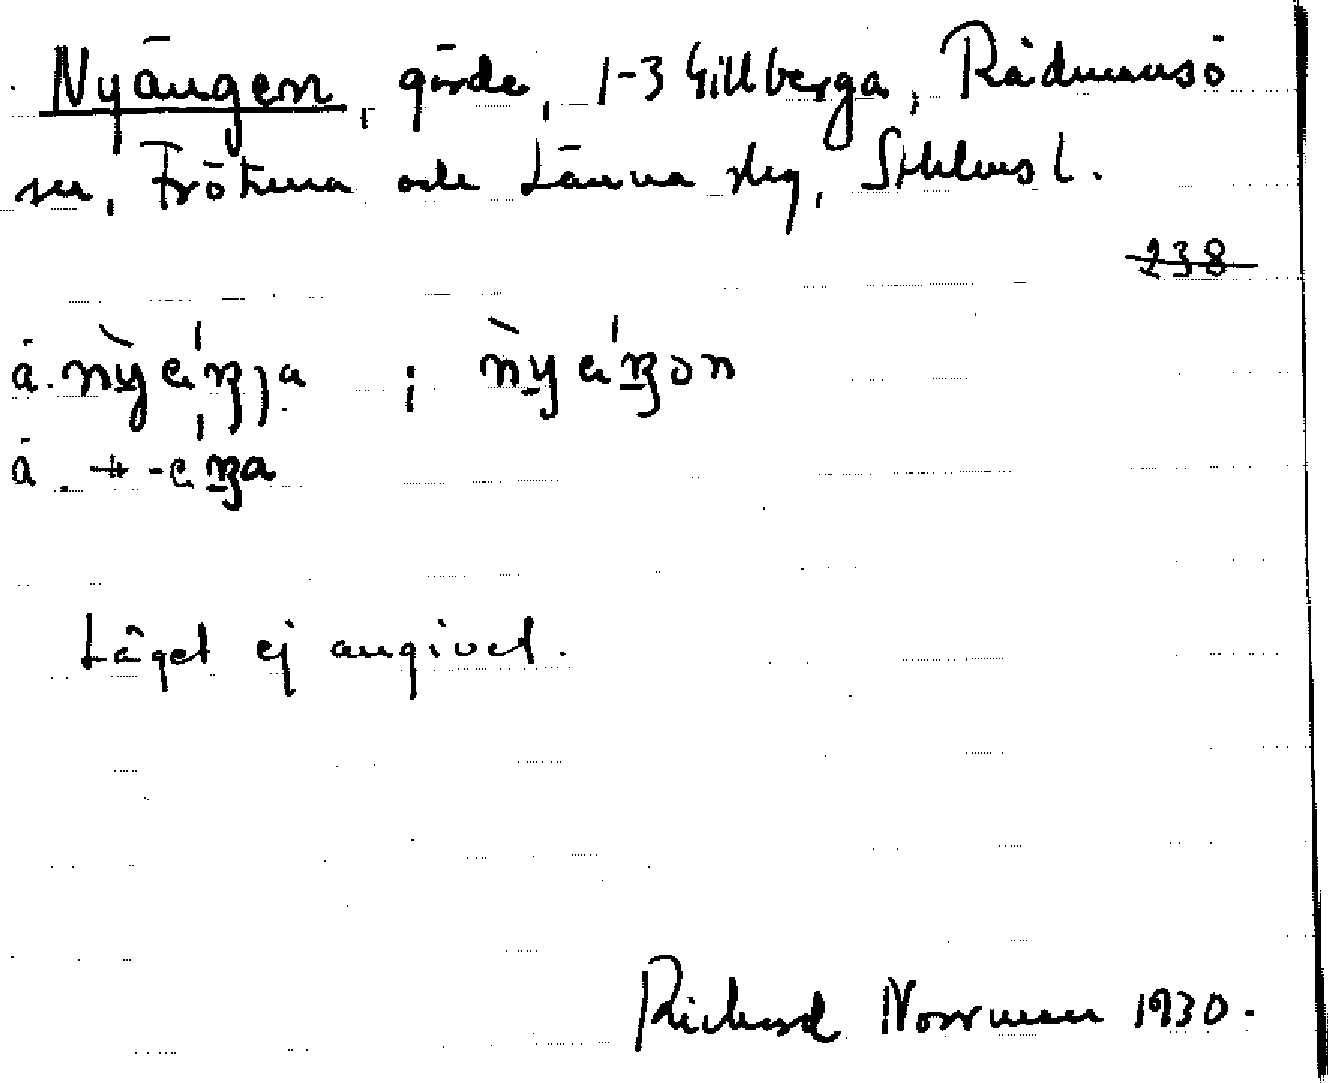 Nyängen, gärde, 1-3 Gillberga, Rådmansö
sn, Frötuna och Länna skg, Sthlms l.
238
å
å
Läget ej angivet.
Richard Norrman 1930.